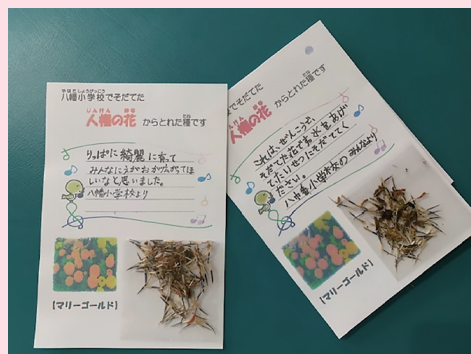 八幡小学校でそだてた
人権の花 からとれた種です
りっぱに綺麗に育って
みんなにえがおがひろがってほ
しいなと思いました。
八幡小学校より
【マリーゴールド】
でそだてた
人権の花 からとれた種です
これは、ぜんこうで、
そだてた花です。水をあげ
てたいせつにそだててく
ださい。
八幡小学校の みんなより
【マリーゴールド】